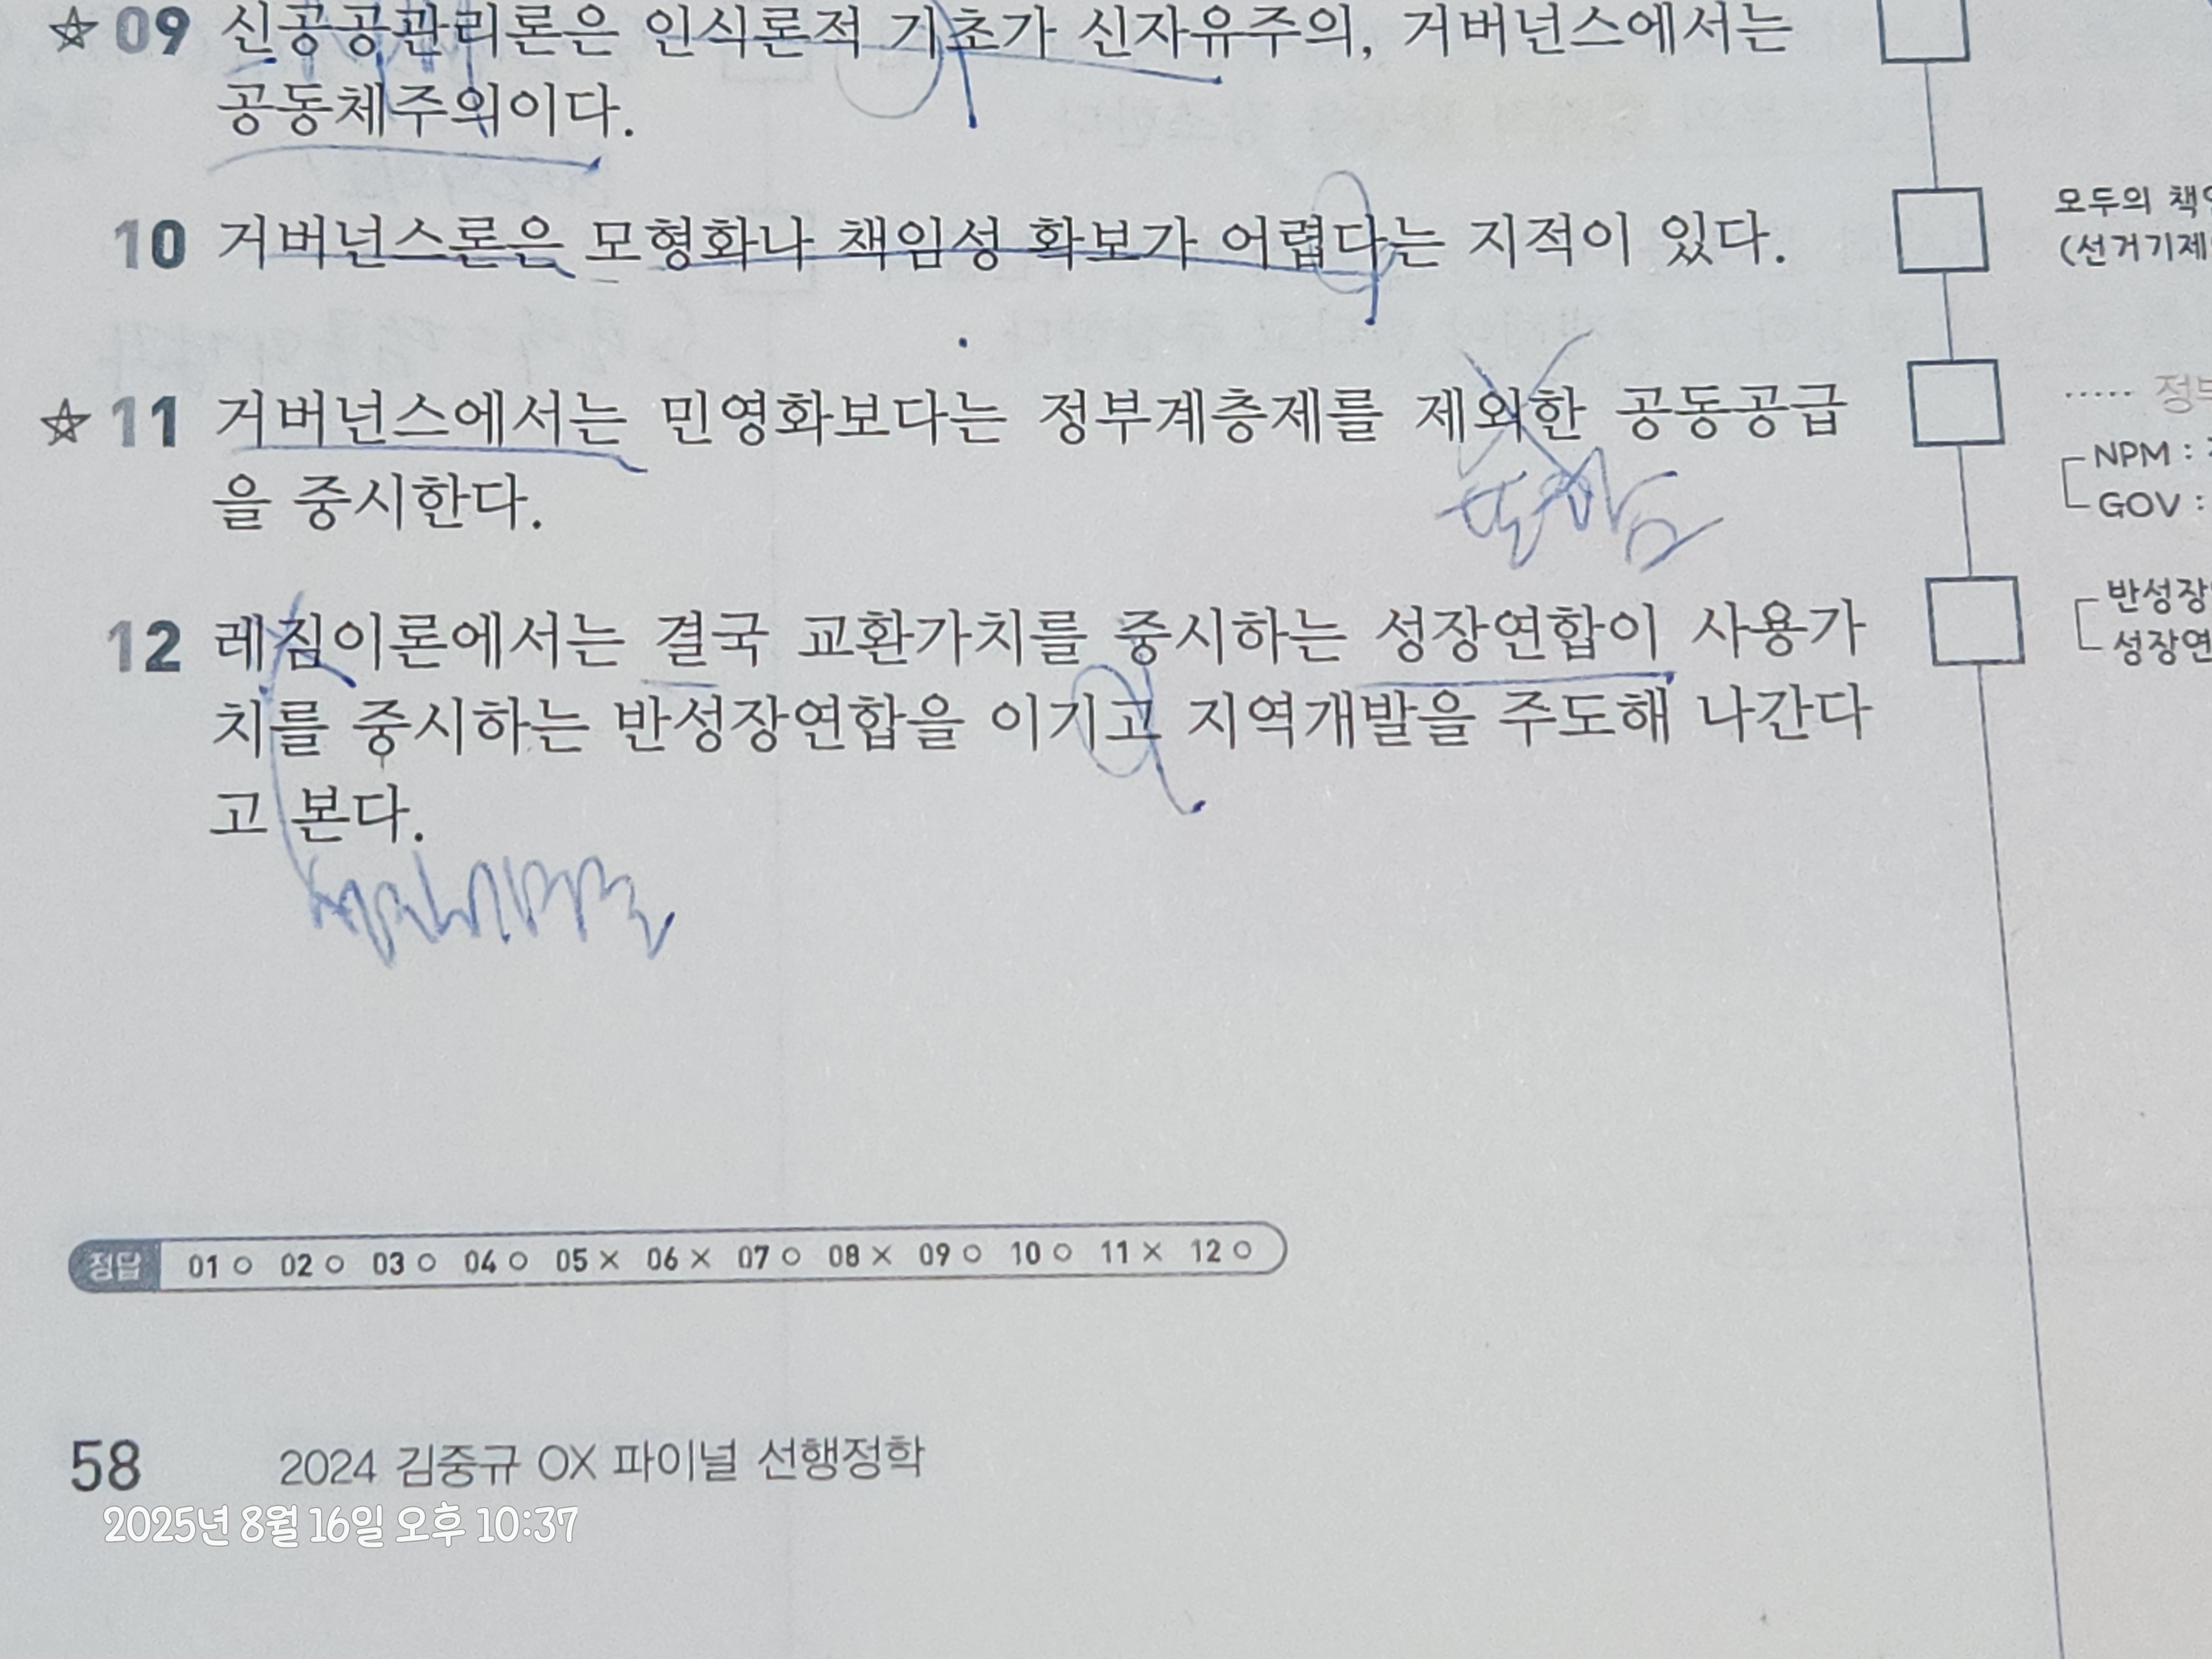 ☆ 09 신공공관리론은 인식론적 기초가 신자유주의, 거버넌스에서는
공동체주의이다.
10 거버넌스론은 모형화나 책임성 확보가 어렵다는 지적이 있다.
모두의 책
(선거기제
☆ 11 거버넌스에서는 민영화보다는 정부계층제를 제외한 공동공급
을 중시한다.
····· 정부
NPM :
GOV :
12 레짐이론에서는 결국 교환가치를 중시하는 성장연합이 사용가
치를 중시하는 반성장연합을 이기고 지역개발을 주도해 나간다
고 본다.
반성장
성장연
정답 01 ○ 02 ○ 03 ○ 04 ○ 05 × 06 × 07 ○ 08 × 09 ○ 10 ○ 11 × 12 ○
58 2024 김중규 OX 파이널 선행정학
2025년 8월 16일 오후 10:37